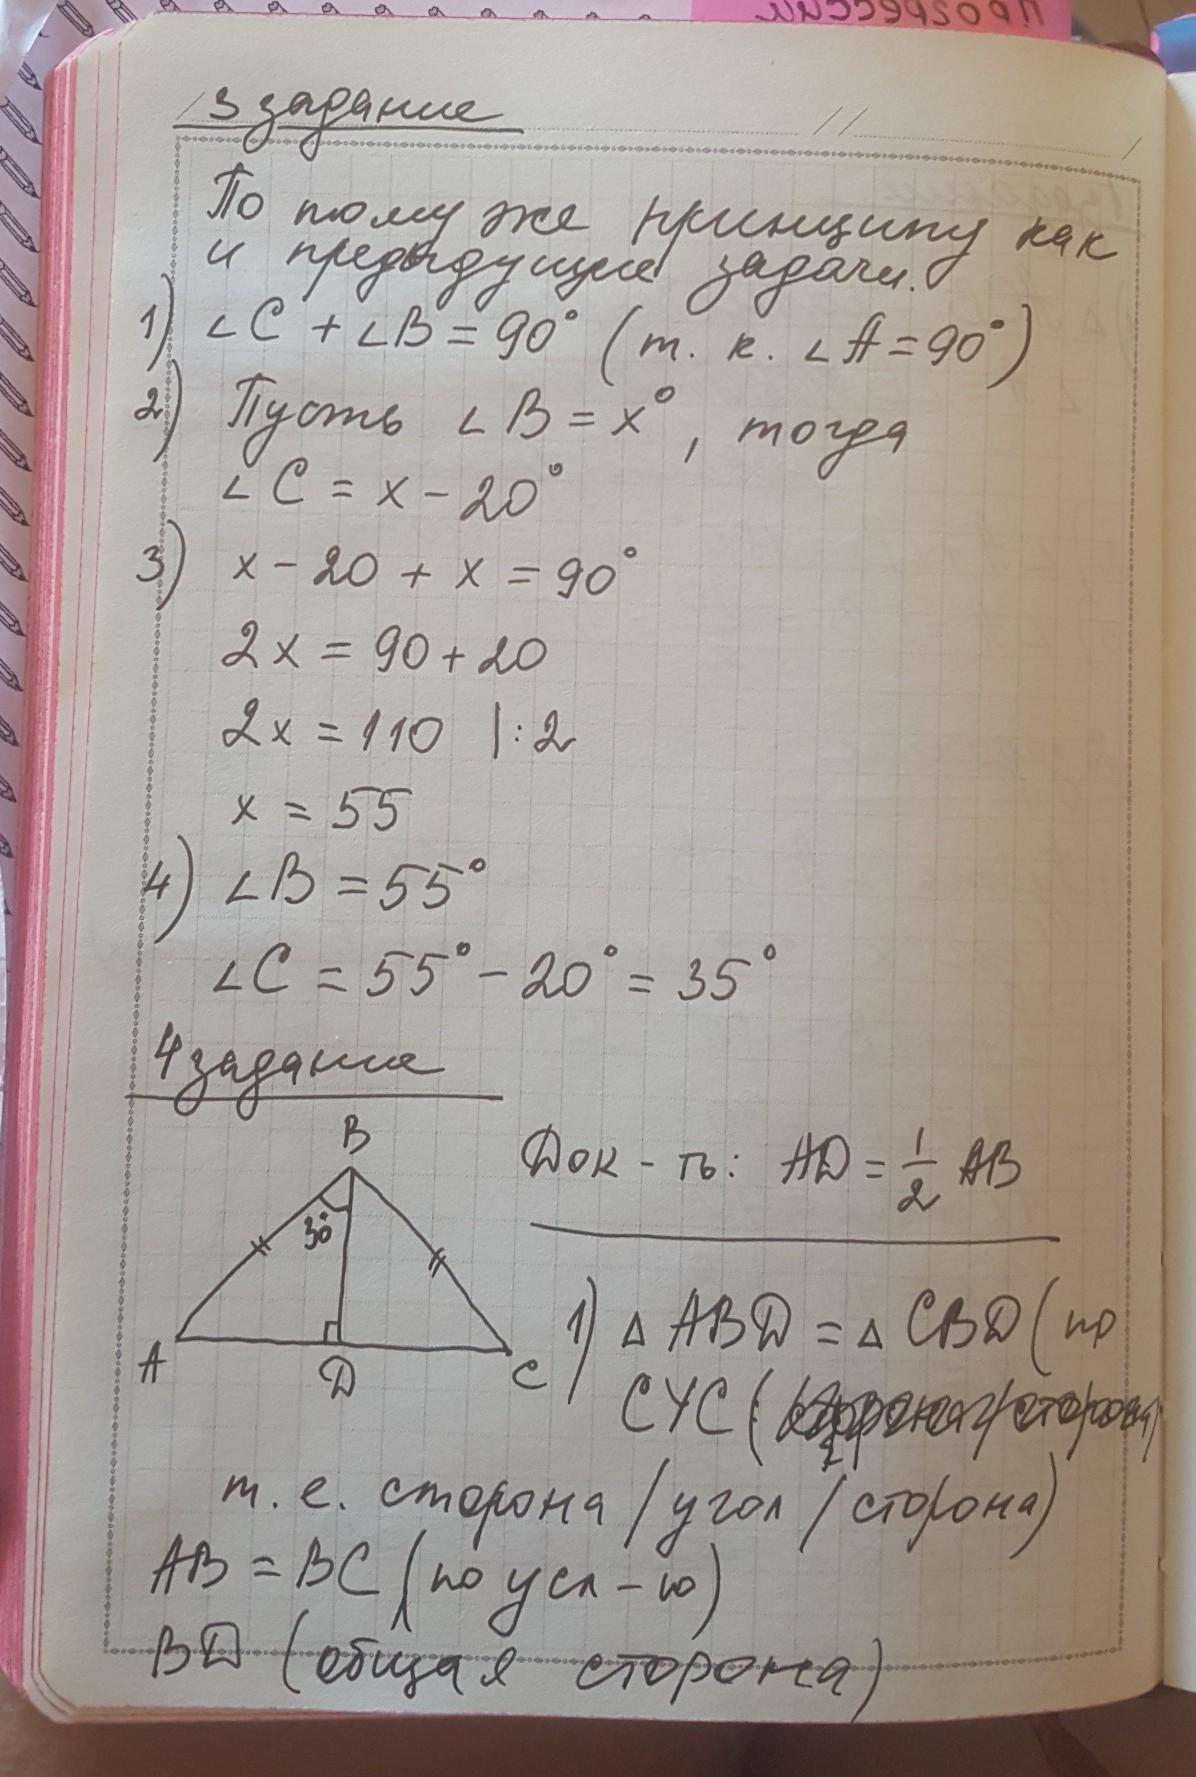 прогрессии
3 задание
По тому же принципу как
и предыдущие задачи.
1) ∠C + ∠B = 90° (т. к. ∠A = 90°)
2) Пусть ∠B = x°, тогда
∠C = x - 20°
3) x - 20 + x = 90°
2x = 90 + 20
2x = 110 |:2
x = 55
4) ∠B = 55°
∠C = 55° - 20° = 35°
4 задание
B
30°
A
D
C
Док-ть: AD = 1/2 AB
1) Δ ABD = Δ CBD (по
СУС (
т. е. сторона / угол / сторона)
AB = BC (по усл-ю)
BD (общая сторона)